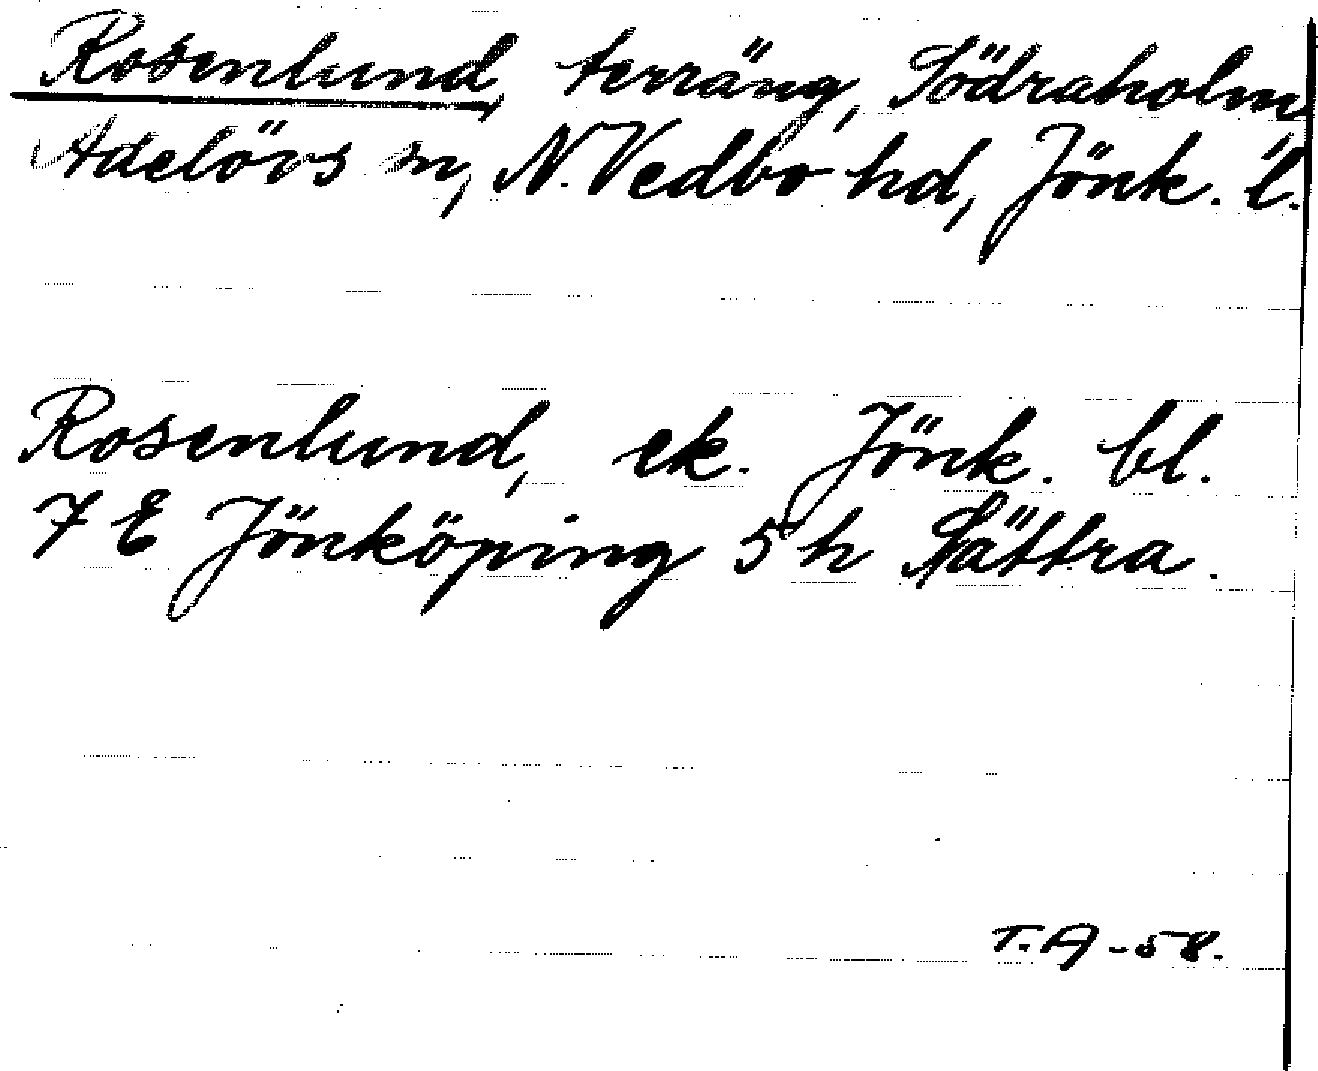 Rosenlund, terräng, Södraholm
Adelövs sn, N. Vedbo hd, Jönk. l.
Rosenlund, ek. Jönk. bl.
7 E Jönköping 5 h Sättra.
T.A-58.